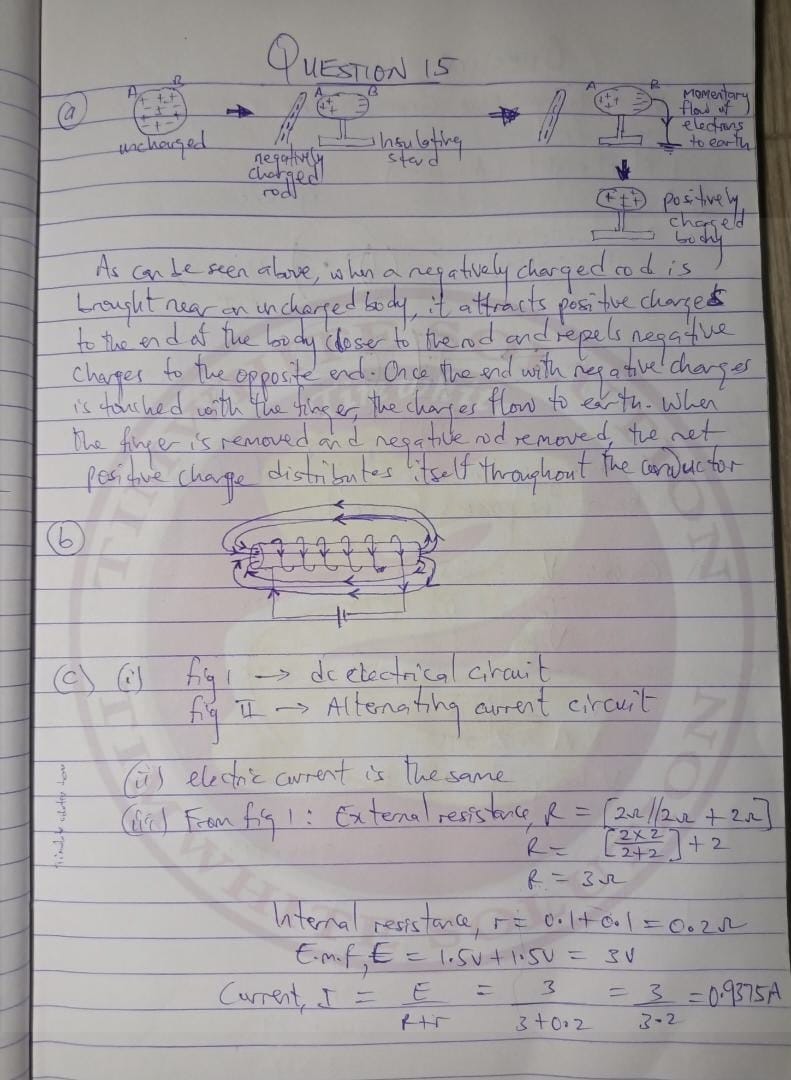 QUESTION 15
(a)
A B
uncharged
negatively charged rod
A B
Insulating stand
A B
Momentary flow of electrons to earth
positively charged body
As can be seen above, when a negatively charged rod is
brought near an uncharged body, it attracts positive charges
to the end of the body closer to the rod and repels negative
charges to the opposite end. Once the end with negative charges
is touched with the finger, the charges flow to earth. When
the finger is removed and negative rod removed, the net
positive charge distributes itself throughout the conductor
(b)
(c) (i) fig 1 → dc electrical circuit
fig II → Alternating current circuit
(ii) electric current is the same
(iii) From fig 1: External resistance, R = [2Ω//2Ω + 2Ω]
R = [2×2/2+2] + 2
R = 3Ω
Internal resistance, r = 0.1+0.1 = 0.2Ω
E.m.f, E = 1.5V + 1.5V = 3V
Current, I = E/R+r = 3/3+0.2 = 3/3.2 = 0.9375A